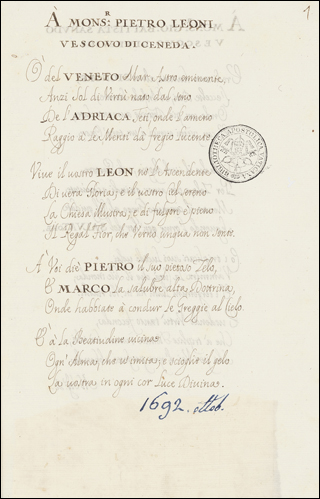 À MONS.R PIETRO LEONI
VESCOVO DI CENEDA.
O del VENETO Mar Astro eminente,
Anzi Sol di Virtù nato dal seno
De l'ADRIACA, onde l'ameno
Raggio à le Menti dà fregio lucente.
Vive il vostro LEON ne l'Ascendente
Di vera Gloria; e il vostro Ciel sereno
La Chiesa illustra, e di fulgori è pieno
Il Regal Fior, che Verno unqua non sente.
A Voi diè PIETRO il suo pietoso Zelo,
E MARCO la salubre alta Dottrina,
Onde habbiate à condur le Greggie al Cielo.
E à la Beatitudine vicina
Ogn'Alma, che v'ammira, e scioglie il gelo
La vostra in ogni cor Luce Divina.
1692.
BIBLIOTECA APOSTOLICA VATICANA